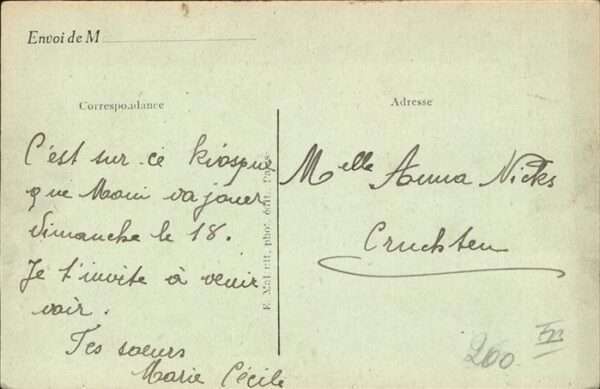 Envoi de M
Correspondance
Adresse
C'est sur ce kiosque
que Moni va jouer
dimanche le 18.
Je t'invite à venir
voir.
Tes soeurs
Marie Cécile
Melle Anna Nicks
Cruchten
200 Fr